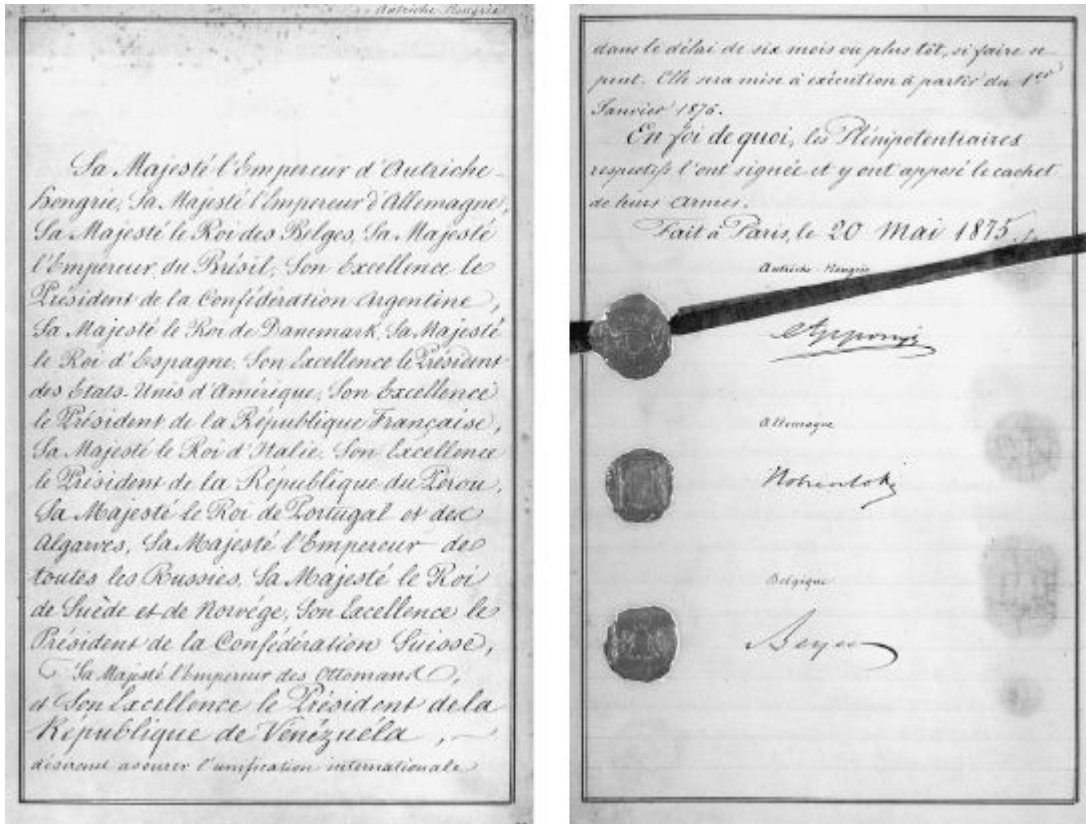 Autriche-Hongrie
Sa Majesté l'Empereur d'Autriche-
Hongrie, Sa Majesté l'Empereur d'Allemagne,
Sa Majesté le Roi des Belges, Sa Majesté
l'Empereur du Brésil, Son Excellence le
Président de la Confédération Argentine,
Sa Majesté le Roi de Danemark, Sa Majesté
le Roi d'Espagne, Son Excellence le Président
des Etats-Unis d'Amérique, Son Excellence
le Président de la République Française,
Sa Majesté le Roi d'Italie, Son Excellence
le Président de la République du Pérou,
Sa Majesté le Roi de Portugal et des
Algarves, Sa Majesté l'Empereur de
toutes les Russies, Sa Majesté le Roi
de Suède et de Norvége, Son Excellence le
Président de la Confédération Suisse,
Sa Majesté l'Empereur des Ottomans,
et Son Excellence le Président de la
République de Vénézuéla,
désirant assurer l'unification internationale
dans le délai de six mois ou plus tôt, si faire se
peut. Elle sera mise à exécution à partir du 1er
Janvier 1876.
En foi de quoi, les Plénipotentiaires
respectifs l'ont signée et y ont apposé le cachet
de leurs armes.
Fait à Paris, le 20 Mai 1875.
Autriche-Hongrie
Apponyi
Allemagne
Hohenlohe
Belgique
Beyens